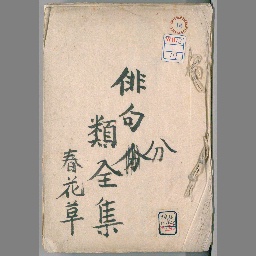 俳句分類全集
春花草